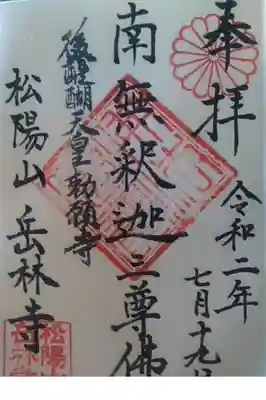 奉拝
令和二年
七月十九日
南無釈迦三尊佛
後醍醐天皇勅願寺
松陽山岳林寺